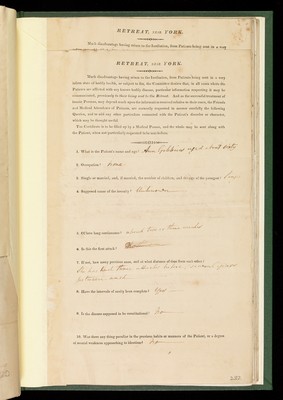 RETREAT, NEAR YORK.
Much disadvantage having arisen to the Institution, from Patients being sent in a very
RETREAT, NEAR YORK.
Much disadvantage having arisen to the Institution, from Patients being sent in a very
infirm state of bodily health, or subject to fits, the Committee desires that in all cases where the
Patients are afflicted with any known bodily disease, particular information respecting it may be
communicated, previously to their being sent to the Retreat. And as the successful treatment of
insane Patients, may depend much upon the information received relative to their cases, the Friends
and Medical Attendants of Patients, are earnestly requested to answer carefully the following
Queries, and to add any other particulars connected with the Patient's disorder or character,
which may be thought useful.
The Certificate is to be filled up by a Medical Person, and the whole may be sent along with
the Patient, when not particularly requested to be sent before.
1. What is the Patient's name and age? Ann
about sixty
2. Occupation? none
3. Single or married, and, if married, the number of children, and the age of the youngest? Single
4. Supposed cause of the Insanity? Unknown
5. Of how long continuance? about two or three weeks
6. Is this the first attack?
7. If not, how many previous ones, and at what distance of time from each other?
She has had three attacks before, several years
between each
8. Have the intervals of sanity been complete? Yes
9. Is the disease supposed to be constitutional? No
10. Was there any thing peculiar in the previous habits or manners of the Patient, or a degree
of mental weakness approaching to idiotism? No